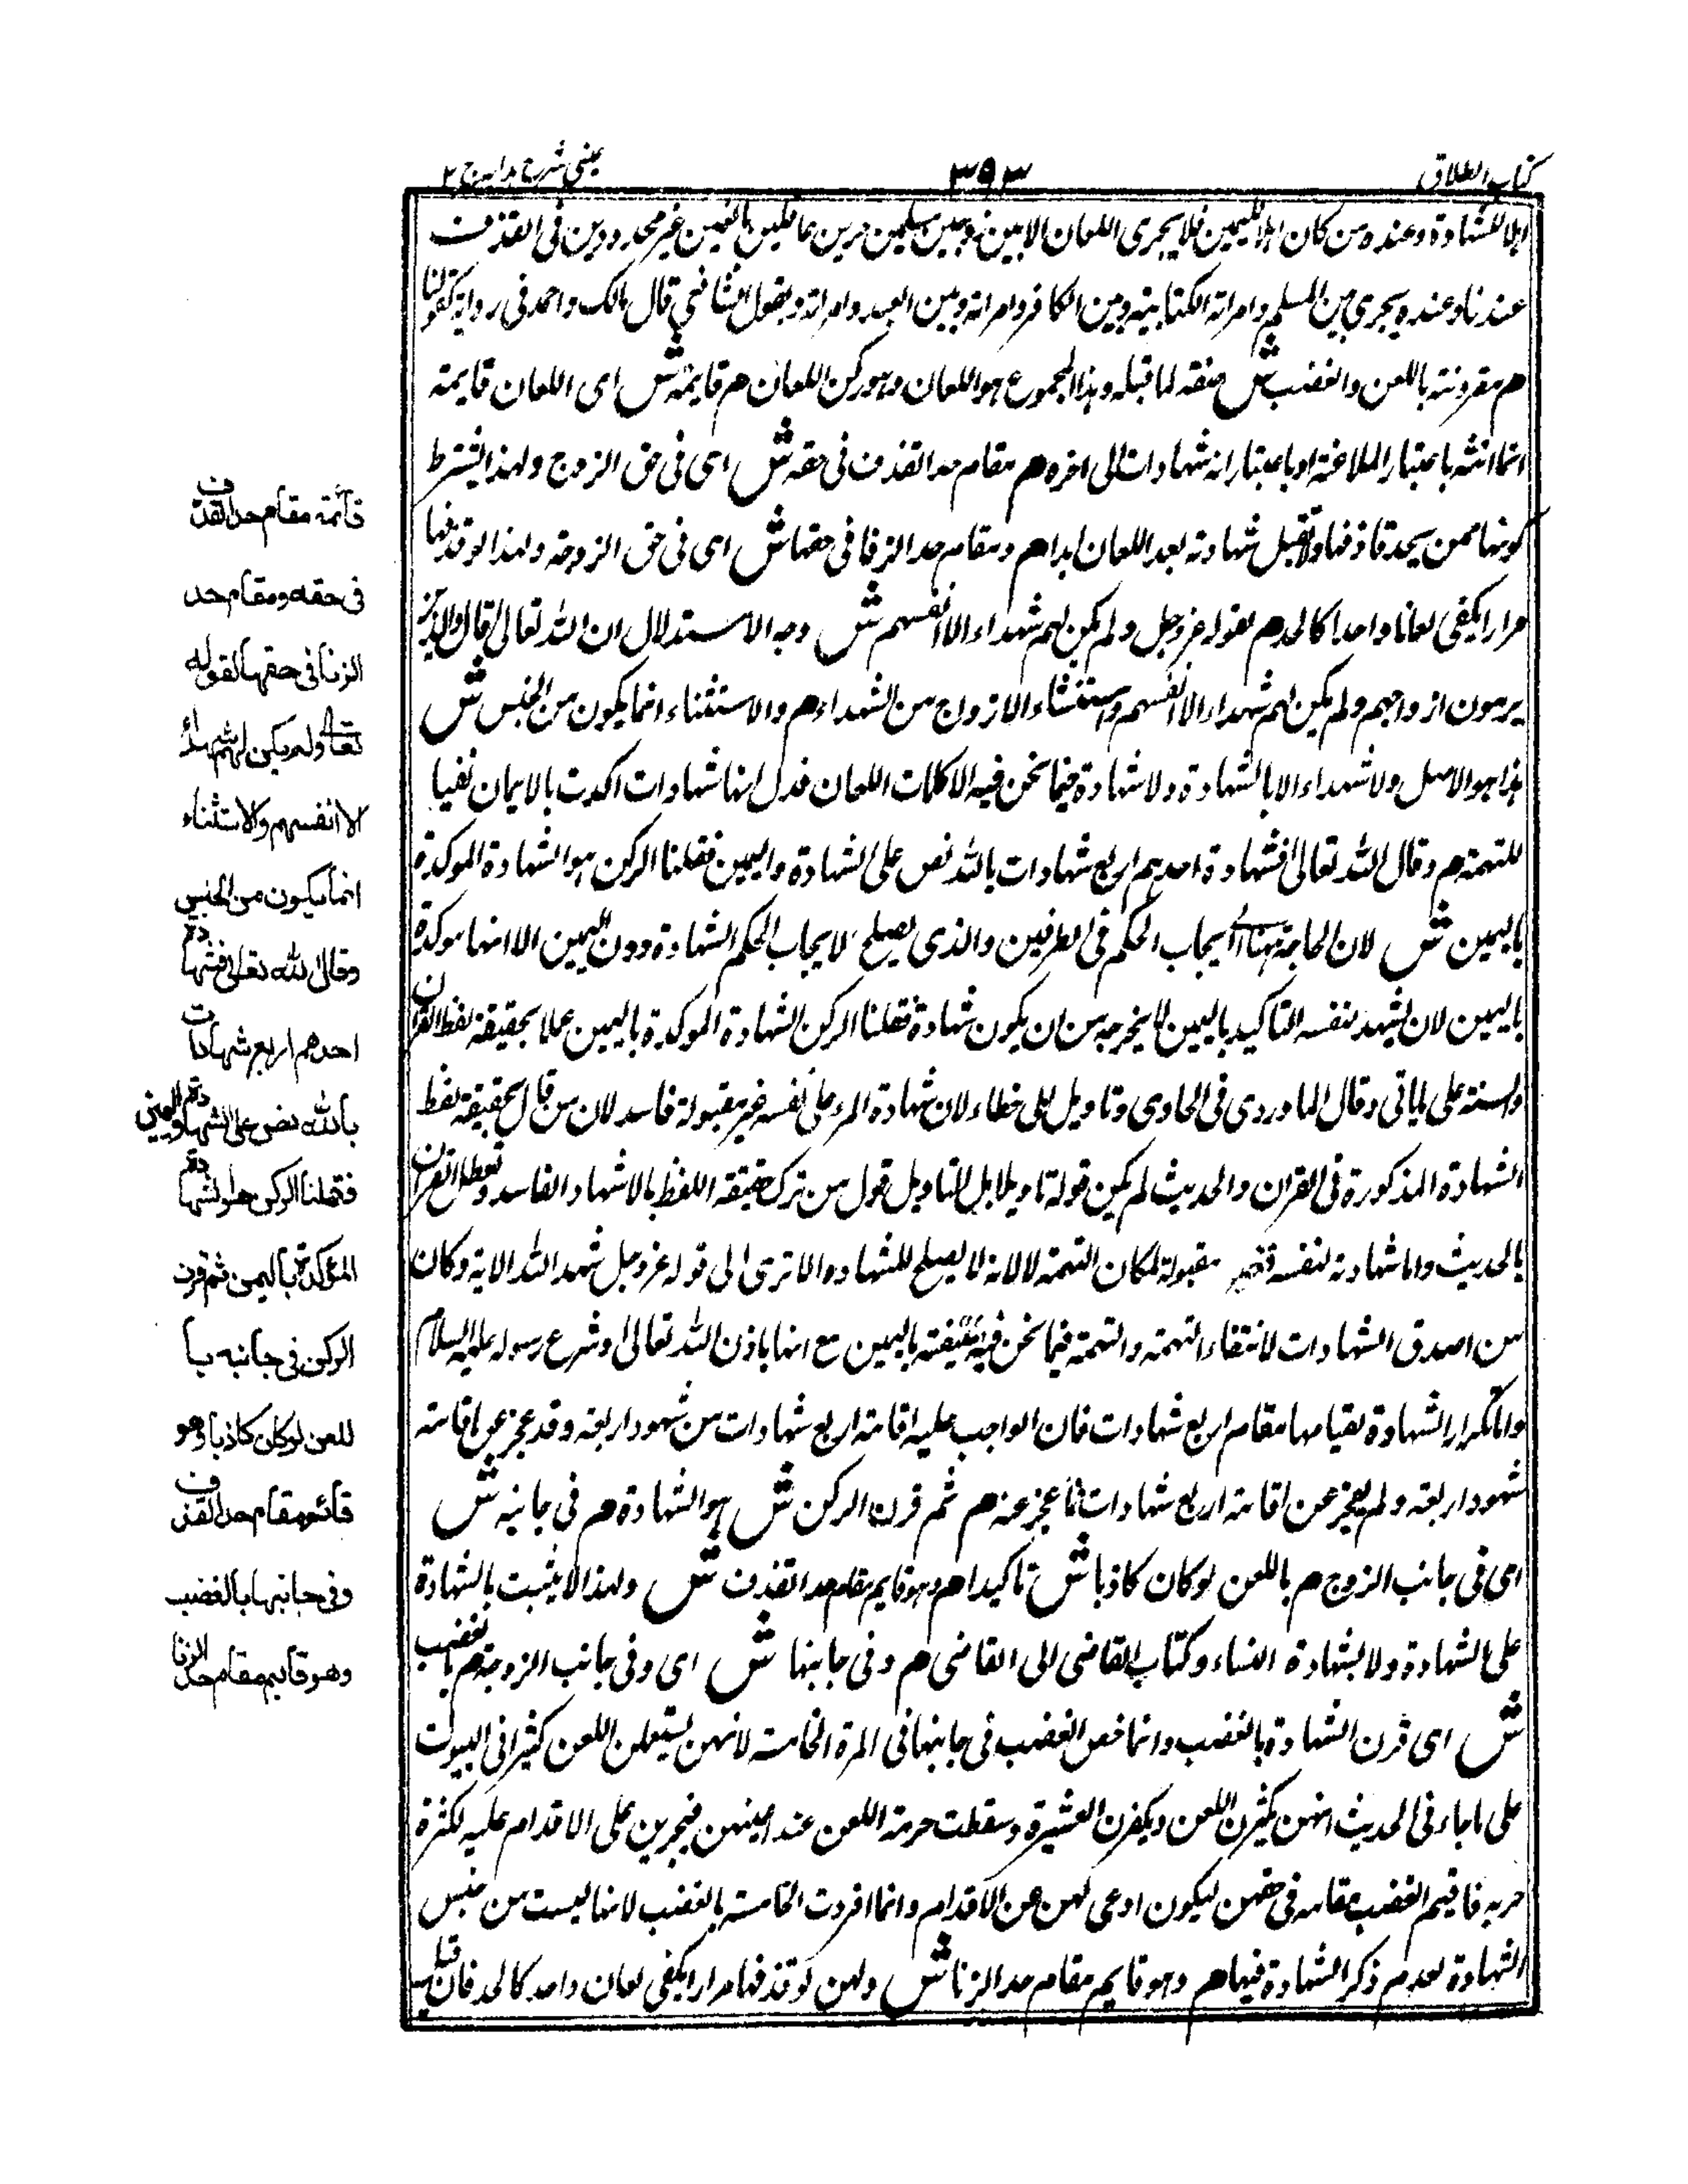 كتاب الطلاق
٣٩٣
عيني شرح هدايه ج ٢
اهلا للشهادة وعنده من كان اهلا لليمين فلا يجرى اللعان الا بين مسلمين حرين عاقلين بالغين غير محدودين فى القذف
عندنا وعنده يجرى بين المسلم وامراته الكتابية وبين الكافر وامراته وبين العبد وامراته وبقول الشافعى قال مالك واحمد فى رواية كقولنا
هم مقرونة باللعن والغضب ش صفة لما قبله وهذا المجموع هو اللعان وهو ركن اللعان هم قايمة ش اى اللعان قايمة
انما انثه باعتبار الملاعنة او باعتبار انه شهادات الى اخره هم مقام حد القذف فى حقه ش اى فى حق الزوج ولهذا يشترط
كونها ممن يحد قاذفها ولا تقبل شهادته بعد اللعان ابدا هم ومقام حد الزنا فى حقها ش اى فى حق الزوجة ولهذا لو قذفها
مرارا يكفى لعانا واحدا كالحد هم لقوله عز وجل ولم يكن لهم شهداء الا انفسهم ش وجه الاستدلال ان الله تعالى قال والذين
يرمون ازواجهم ولم يكن لهم شهداء الا انفسهم واستثناء الازواج من الشهداء هم والاستثناء انما يكون من الجنس ش
هذا هو الاصل ولا شهداء الا بالشهادة ولا شهادة فيما نحن فيه الا كلمات اللعان فدل انها شهادات اكدت بالايمان نفيا
للتهمة هم وقال الله تعالى فشهادة احدهم اربع شهادات بالله نص على الشهادة واليمين فقلنا الركن هو الشهادة الموكدة
باليمين ش لان الحاجة ههنا الى ايجاب الحكم فى الطرفين والذى يصلح لايجاب الحكم الشهادة دون اليمين الا انها موكدة
باليمين لان يشهد لنفسه التاكيد باليمين لا يخرجه من ان يكون شهادة فقلنا الركن الشهادة الموكدة باليمين عملا بحقيقة لفظ القران
والسنة على ما ياتى وقال الماوردى فى الحاوى وتاويل على خطاء لان شهادة المرء على نفسه غير مقبولة فاسد لان من قال بحقيقة لفظ
الشهادة المذكورة فى القران والحديث لم يكن قوله تاويلا بل التاويل قول من ترك حقيقة اللفظ بالاشهاد الفاسد وتعطل القران
بالحديث واما شهادته لنفسه فغير مقبولة لمكان التهمة لا لانه لا يصلح للشهاده الا ترى الى قوله عز وجل شهد الله الاية وكان
من اصدق الشهادات لانتفاء التهمة والتهمة فيما نحن فيه منتفية باليمين مع انها باذن الله تعالى وشرع رسوله عليه السلام
واما تكرار الشهادة لقيامها مقام اربع شهادات فان الواجب عليه اقامة اربع شهادات من شهود اربعة وقد عجز عن اقامة
شهود اربعة ولم يعجز عن اقامة اربع شهادات عما عجز عنه هم ثم قرن الركن ش هو الشهادة هم فى جانبه ش
اى فى جانب الزوج هم باللعن لو كان كاذبا ش تاكيدا هم وهو قايم مقام حد القذف ش ولهذا لا يثبت بالشهادة
على الشهادة ولا بشهادة النساء وكتاب القاضى الى القاضى هم وفى جانبها ش اى وفى جانب الزوجة هم بالغضب
ش اى قرن الشهادة بالغضب وانما خص الغضب فى جانبها فى المرة الخامسة لانهن يستعملن اللعن كثيرا فى البيوت
على ما جاء فى الحديث انهن يكثرن اللعن ويكفرن العشيرة وسقطت حرمة اللعن عند اعينهن فيجرين على الاقدام عليه لكثرة
جريه فاقيم الغضب مقامه فى حقهن ليكون ادعى لهن عن الاقدام وانما افردت الخامسة بالغضب لانها ليست من جنس
الشهادة لعدم ذكر الشهادة فيها هم وهو قايم مقام حد الزنا ش ولهن لو قذفها مرارا يكفى لعان واحد كالحد فان قيل
قائمة مقام حد القذف
فى حقه ومقام حد
الزنا فى حقها لقوله
تعالى ولم يكن لهم شهداء
الا انفسهم والاستثناء
انما يكون من الجنس
وقال الله تعالى فشهادة
احدهم اربع شهادات
بالله نص على الشهادة واليمين
فقلنا الركن هو الشهادة
المؤكدة باليمين ثم قرن
الركن فى جانبه با
للعن لو كان كاذبا وهو
قائم مقام حد القذف
وفى جانبها بالغضب
وهو قايم مقام حد الزنا